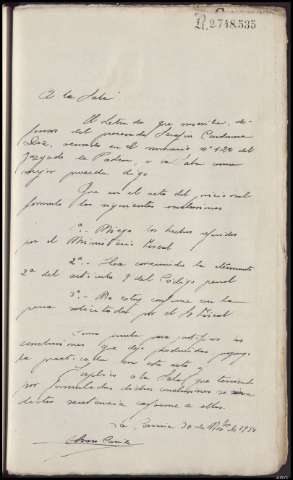 R.2748.535
A la Sala
El Letrado que suscribe, de-
fensor del procesado Serafin Cardama
Diz, sumario en el numero nº 129 del
Juzgado de Padron, a la Sala como
mejor proceda digo
Que en el acto del juicio oral
formulo las siguientes conclusiones
1ª.- Niego los hechos referidos
por el Ministerio Fiscal
2ª.- Ha concurrido la atenuante
2ª del articulo 9 del Codigo penal
3ª.- No estoy conforme con la
pena solicitada por el Sr Fiscal
Como prueba para justificar las
conclusiones que dejo producidas propongo
la practicada en este acto
Suplico a la Sala que teniendo
por formuladas dichas conclusiones se sirva
dictar sentencia conforme a ellas.
La Coruña 30 de Nbre de 1934